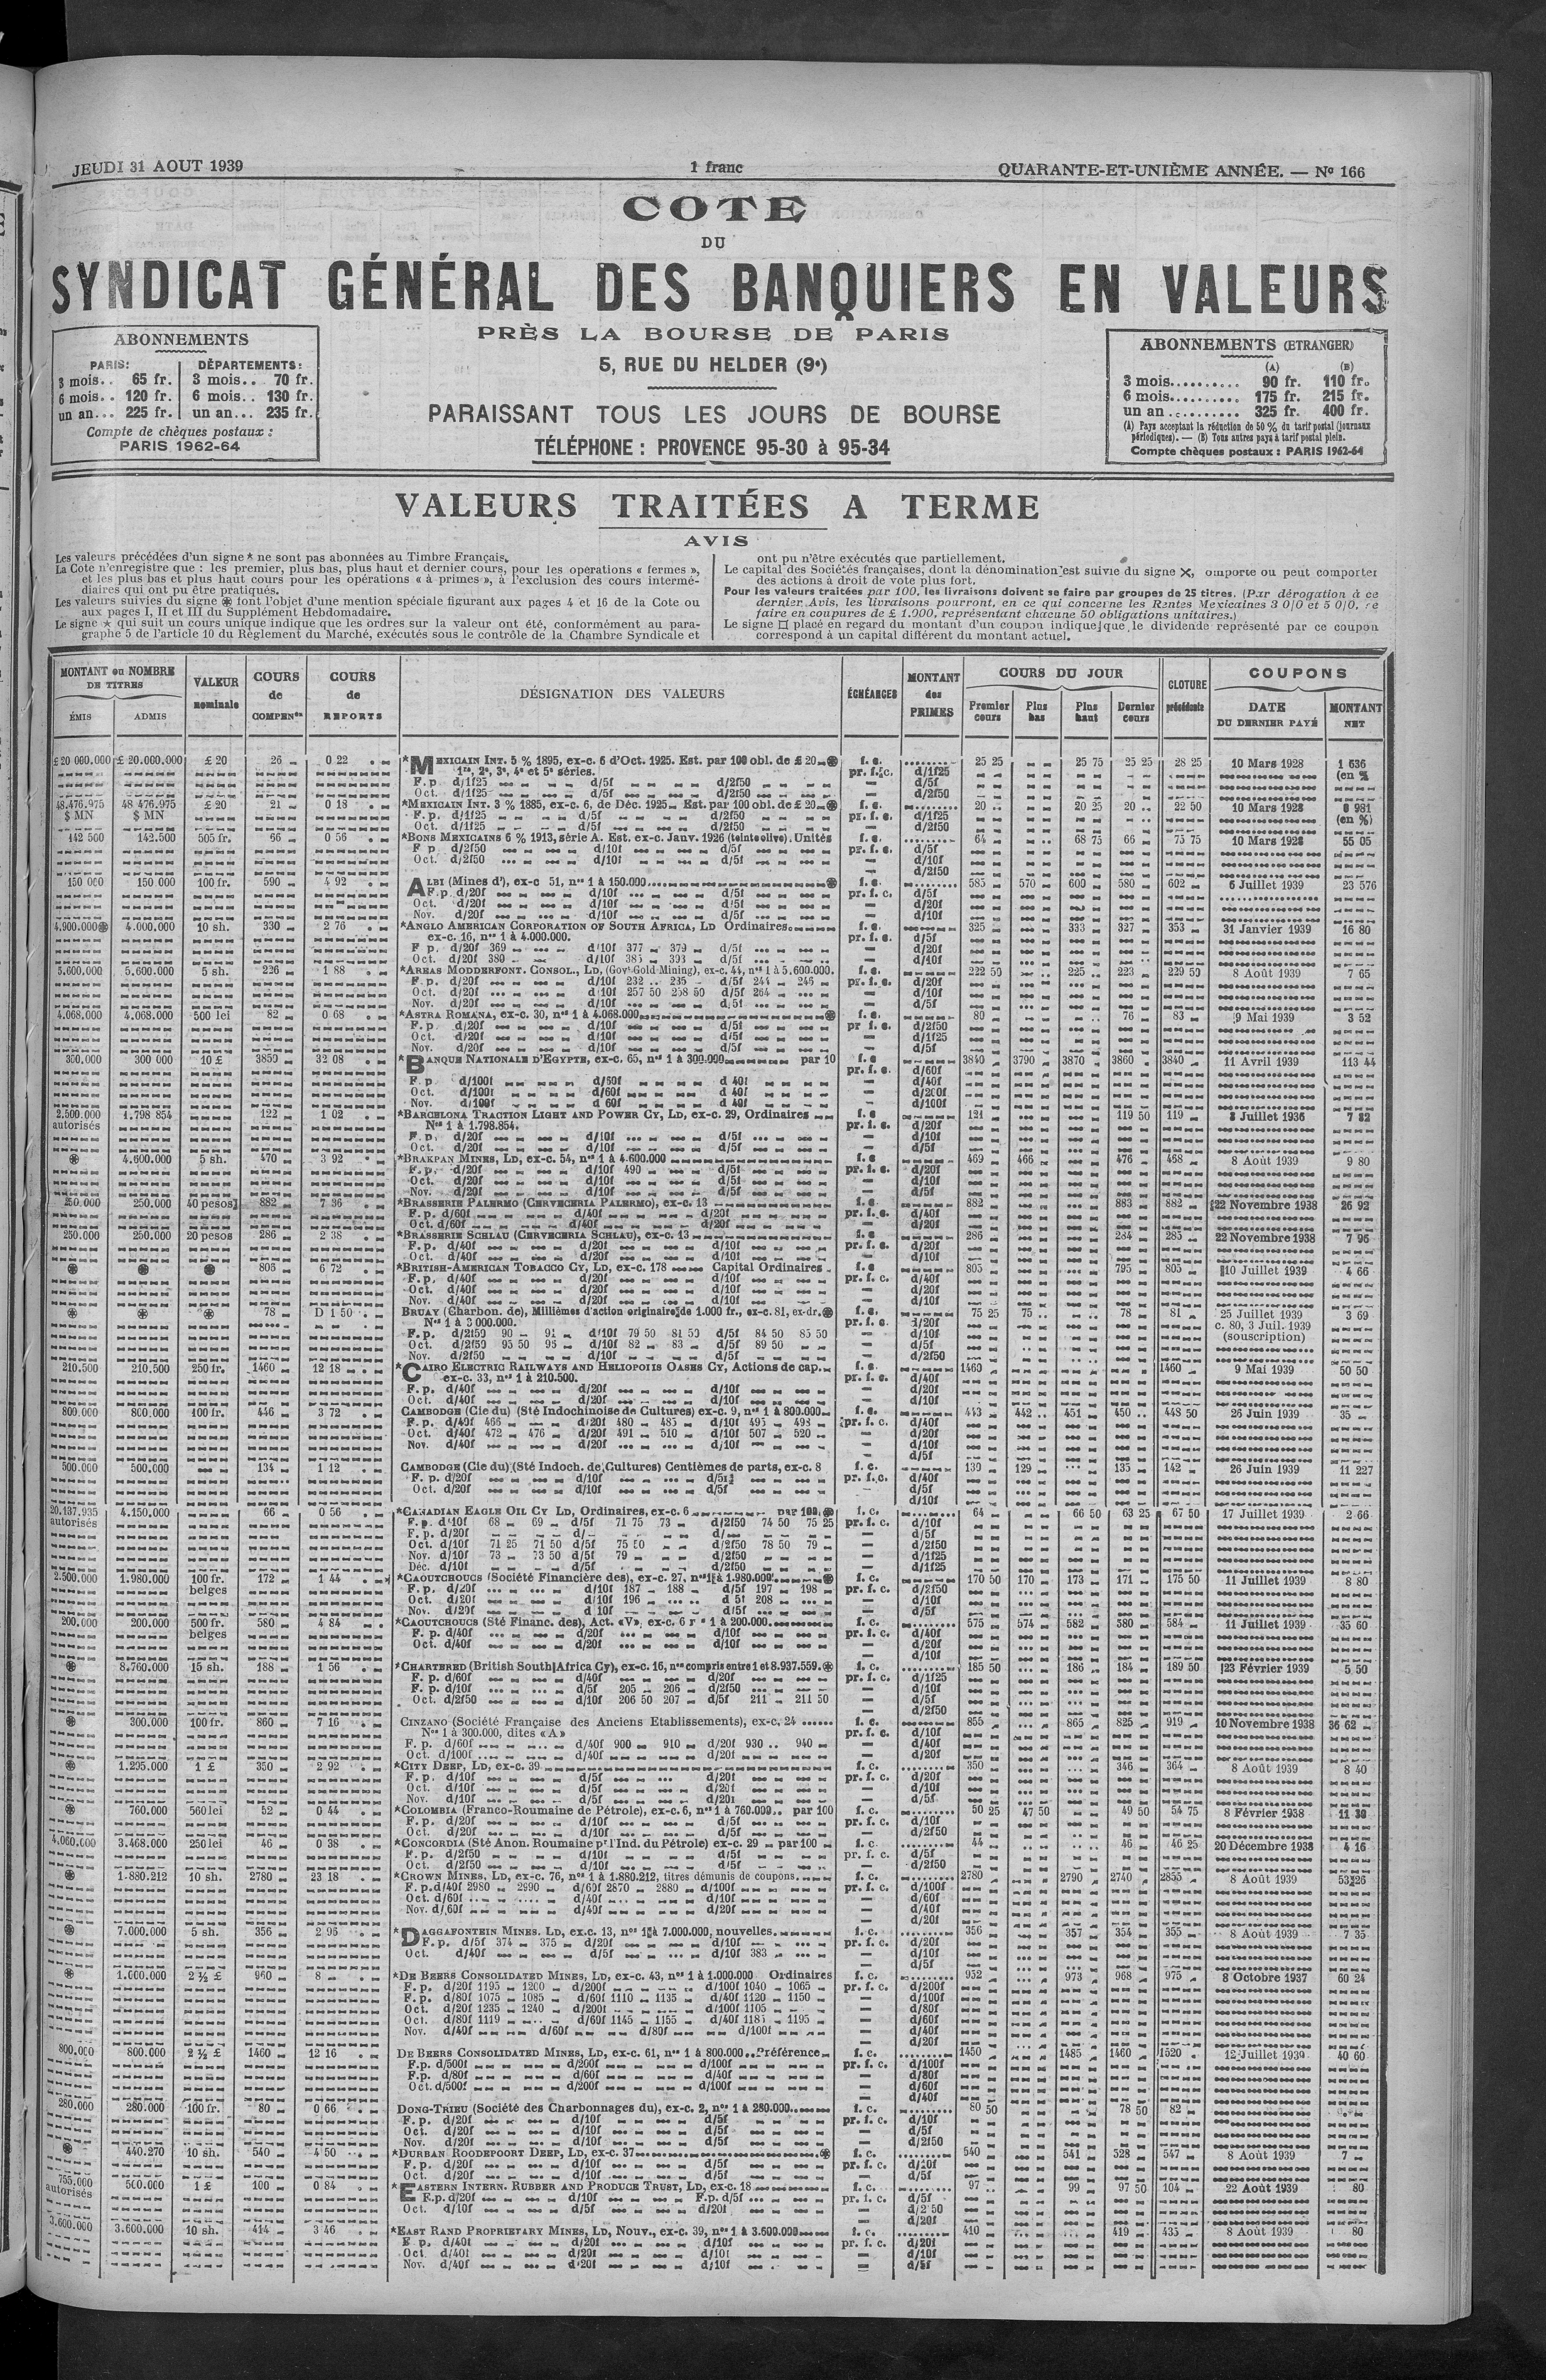 JEUDI 31 AOUT 1939
1 franc
QUARANTE-ET-UNIÈME ANNÉE. — No 166
COTE
DU
SYNDICAT GÉNÉRAL DES BANQUIERS EN VALEURS
PRÈS LA BOURSE DE PARIS
5, RUE DU HELDER (9e)
PARAISSANT TOUS LES JOURS DE BOURSE
TÉLÉPHONE : PROVENCE 95-30 à 95-34
ABONNEMENTS
PARIS: DÉPARTEMENTS:
3 mois.. 65 fr. 3 mois.. 70 fr.
6 mois.. 120 fr. 6 mois.. 130 fr.
un an... 225 fr. un an... 235 fr.
Compte de chèques postaux :
PARIS 1962-64
ABONNEMENTS (ETRANGER)
(A) (B)
3 mois.......... 90 fr. 110 fr.
6 mois.......... 175 fr. 215 fr.
un an .......... 325 fr. 400 fr.
(A) Pays acceptant la réduction de 50 % du tarif postal (journaux
périodiques). — (B) Tous autres pays à tarif postal plein.
Compte chèques postaux : PARIS 1962-64
VALEURS TRAITÉES A TERME
AVIS
Les valeurs précédées d'un signe * ne sont pas abonnées au Timbre Français.
La Cote n'enregistre que : les premier, plus bas, plus haut et dernier cours, pour les opérations « fermes »,
et les plus bas et plus haut cours pour les opérations « à primes », à l'exclusion des cours intermé-
diaires qui ont pu être pratiqués.
Les valeurs suivies du signe ⊛ font l'objet d'une mention spéciale figurant aux pages 4 et 16 de la Cote ou
aux pages I, II et III du Supplément Hebdomadaire.
Le signe ★ qui suit un cours unique indique que les ordres sur la valeur ont été, conformément au para-
graphe 5 de l'article 10 du Règlement du Marché, exécutés sous le contrôle de la Chambre Syndicale et
ont pu n'être exécutés que partiellement.
Le capital des Sociétés françaises, dont la dénomination est suivie du signe ×, omporte ou peut comporter
des actions à droit de vote plus fort.
Pour les valeurs traitées par 100, les livraisons doivent se faire par groupes de 25 titres. (Par dérogation à ce
dernier Avis, les livraisons pourront, en ce qui concerne les Rentes Mexicaines 3 0/0 et 5 0/0, se
faire en coupures de £ 1.000, représentant chacune 50 obligations unitaires.)
Le signe □ placé en regard du montant d'un coupon indique que le dividende représenté par ce coupon
correspond à un capital différent du montant actuel.
MONTANT ou NOMBRE DE TITRES
ÉMIS ADMIS
VALEUR nominale
COURS de COMPENon
COURS de REPORTS
DÉSIGNATION DES VALEURS
ÉCHÉANCES
MONTANT des PRIMES
COURS DU JOUR
Premier cours Plus bas Plus haut Dernier cours
CLOTURE précédente
COUPONS
DATE DU DERNIER PAYÉ
MONTANT NET
£ 20 000.000 £ 20.000.000 £ 20 26 0 22 *MEXICAIN INT. 5 % 1895, ex-c. 6 d'Oct. 1925. Est. par 100 obl. de £ 20 ⊛ f. c. 25 25 25 75 25 25 28 25 10 Mars 1928 1 636
1re, 2e, 3e, 4e et 5e séries. pr. f. c. d/1f25 (en %
F. p d/1f25 d/5f d/2f50 — d/5f
Oct. d/1f25 d/5f d/2f50 — d/2f50
48.476.975 48 476.975 £ 20 21 0 18 *MEXICAIN INT. 3 % 1885, ex-c. 6, de Déc. 1925 Est. par 100 obl. de £ 20 ⊛ f. c. 20 .. 20 25 20 .. 22 50 10 Mars 1928 0 981
$ MN $ MN F. p. d/1f25 d/5f d/2f50 pr. f. c. d/1f25 (en %)
Oct. d/1f25 d/5f d/2f50 — d/2f50
142 500 142.500 505 fr. 66 0 56 *BONS MEXICAINS 6 % 1913, série A. Est. ex-c. Janv. 1926 (teinte olive). Unités f. c. 64 68 75 66 75 75 10 Mars 1928 55 05
F p d/2f50 d/10f d/5f pr. f. c. d/5f
Oct. d/2f50 d/10f d/5f — d/10f
— d/2f50
150 000 150 000 100 fr. 590 4 92 ALBI (Mines d'), ex-c 51, nos 1 à 150.000 ⊛ f. c. 585 570 600 580 602 6 Juillet 1939 23 576
F. p. d/20f d/10f d/5f pr. f. c. d/5f
Oct. d/20f d/10f d/5f — d/20f
Nov. d/20f d/10f d/5f — d/10f
4.900.000⊛ 4.000.000 10 sh. 330 2 76 *ANGLO AMERICAN CORPORATION OF SOUTH AFRICA, LD Ordinaires f. c. 325 333 327 353 31 Janvier 1939 16 80
ex-c. 16, nos 1 à 4.000.000. pr. f. c. d/5f
F p. d/20f 369 d/10f 377 379 d/5f — d/20f
Oct. d/20f 380 d/10f 385 393 d/5f — d/10f
5.600.000 5.600.000 5 sh. 226 1 88 *AREAS MODDERFONT. CONSOL., LD, (Govt Gold Mining), ex-c. 44, nos 1 à 5.600.000. f. c. 222 50 225 223 229 50 8 Août 1939 7 65
F. p. d/20f d/10f 232 235 d/5f 244 246 pr. f. c. d/20f
Oct. d/20f d/10f 257 50 258 50 d/5f 264 — d/10f
Nov. d/20f d/10f d/5f — d/5f
4.068.000 4.068.000 500 lei 82 0 68 *ASTRA ROMANA, ex-c. 30, nos 1 à 4.068.000 ⊛ f. c. 80 76 83 9 Mai 1939 3 52
F. p d/20f d/10f d/5f pr f. c. d/2f50
Oct. d/20f d/10f d/5f — d/1f25
Nov. d/20f d/10f d/5f — d/5f
300.000 300 000 10 £ 3850 32 08 *BANQUE NATIONALE D'EGYPTE, ex-c. 65, nos 1 à 300.000 par 10 f. c 3840 3790 3870 3860 3840 11 Avril 1939 113 44
pr. f. c. d/60f
F. p d/100f d/60f d 40f — d/40f
Oct. d/100f d/60f d 40f — d/200f
Nov. d/100f d 60f d 40f — d/100f
2.500.000 1.798 854 122 1 02 *BARCELONA TRACTION LIGHT AND POWER CY, LD, ex-c. 29, Ordinaires f. c 121 119 50 119 8 Juillet 1936 7 82
autorisés Nos 1 à 1.798.854. pr. f. c. d/20f
F. p. d/20f d/10f d/5f — d/10f
Oct. d/20f d/10f d/5f — d/5f
⊛ 4.600.000 5 sh. 470 3 92 *BRAKPAN MINES, LD, ex-c. 54, nos 1 à 4.600.000 f. c 469 466 476 468 8 Août 1939 9 80
F. p. d/20f d/10f 490 d/5f pr. f. c. d/20f
Oct. d/20f d/10f d/5f — d/10f
Nov. d/20f d/10f d/5f — d/5f
250.000 250.000 40 pesos 882 7 36 *BRASSERIE PALERMO (CERVECERIA PALERMO), ex-c. 13 f. c. 882 883 882 22 Novembre 1938 26 92
F. p. d/60f d/40f d/20f pr. f. c. d/40f
Oct. d/60f d/40f d/20f — d/20f
250.000 250.000 20 pesos 286 2 38 *BRASSERIE SCHLAU (CERVECERIA SCHLAU), ex-c. 13 f. c 286 284 285 22 Novembre 1938 7 96
F. p. d/40f d/20f d/10f pr. f. c. d/20f
Oct. d/40f d/20f d/10f — d/10f
⊛ ⊛ ⊛ 806 6 72 *BRITISH-AMERICAN TOBACCO CY, LD, ex-c. 178 Capital Ordinaires f. c 805 795 805 10 Juillet 1939 4 66
F. p. d/40f d/20f d/10f pr. f. c. d/40f
Oct. d/40f d/20f d/10f — d/20f
Nov. d/40f d/20f d/10f — d/10f
⊛ ⊛ ⊛ 78 D 1 50 BRUAY (Charbon. de), Millièmes d'action originaire de 1.000 fr., ex-c. 81, ex-dr. ⊛ f. c. 75 25 75 78 81 25 Juillet 1939 3 69
Nos 1 à 3 000.000. pr. f. c. d/20f c. 80, 3 Juil. 1939
F. p. d/2f50 90 91 d/10f 79 50 81 50 d/5f 84 50 85 50 — d/10f (souscription)
Oct. d/2f50 95 50 96 d/10f 82 83 d/5f 89 50 — d/5f
Nov. d/2f50 d/10f d/5f — d/2f50
210.500 210.500 250 fr. 1460 12 18 *CAIRO ELECTRIC RAILWAYS AND HELIOPOLIS OASES CY, Actions de cap. f. c. 1460 1460 9 Mai 1939 50 50
ex-c. 33, nos 1 à 210.500. pr. f. c. d/40f
F. p. d/40f d/20f d/10f — d/20f
Oct. d/40f d/20f d/10f — d/10f
800.000 800.000 100 fr. 446 3 72 CAMBODGE (Cie du) (Sté Indochinoise de Cultures) ex-c. 9, nos 1 à 800.000 f. c. 443 442 451 450 448 50 26 Juin 1939 35
F. p. d/40f 466 d/20f 480 485 d/10f 495 498 pr. f. c. d/40f
Oct. d/40f 472 476 d/20f 491 510 d/10f 507 520 — d/20f
Nov. d/40f d/20f d/10f — d/10f
— d/5f
500.000 500.000 134 1 12 CAMBODGE (Cie du) (Sté Indoch. de Cultures) Centièmes de parts, ex-c. 8 f. c. 139 129 135 142 26 Juin 1939 11 227
F. p. d/20f d/10f d/5f pr. f. c. d/40f
Oct. d/20f d/10f d/5f — d/5f
— d/10f
20.137.935 4.150.000 66 0 56 *CANADIAN EAGLE OIL CY LD, Ordinaires, ex-c. 6 par 100. ⊛ f. c. 64 66 50 63 25 67 50 17 Juillet 1939 2 66
autorisés F. p. d/10f 68 69 d/5f 71 75 73 d/2f50 74 50 75 25 pr. f. c. d/10f
F. p. d/20f d/ d/ — d/5f
Oct. d/10f 71 25 71 50 d/5f 75 50 d/2f50 78 50 79 — d/2f50
Nov. d/10f 73 73 50 d/5f 79 d/2f50 — d/1f25
Déc. d/10f d/5f d/2f50 — d/1f25
2.500.000 1.980.000 100 fr. 172 1 44 *CAOUTCHOUCS (Société Financière des), ex-c. 27, nos 1 à 1.980.000 ⊛ f. c. 170 50 170 173 171 175 50 11 Juillet 1939 8 80
belges F. p. d/20f d/10f 187 188 d/5f 197 198 pr. f. c. d/2f50
Oct. d/20f d/10f 196 d 5f 208 — d/10f
Nov. d/20f d 10f d/5f — d/5f
200.000 200.000 500 fr. 580 4 84 *CAOUTCHOUCS (Sté Financ. des), Act. «V», ex-c. 6 nos 1 à 200.000 f. c. 575 574 582 580 584 11 Juillet 1939 35 60
belges F. p. d/40f d/20f d/10f pr. f. c. d/40f
Oct. d/40f d/20f d/10f — d/20f
— d/10f
⊛ 8.760.000 15 sh. 188 1 56 *CHARTERED (British South Africa Cy), ex-c. 16, nos compris entre 1 et 8.937.559. ⊛ f. c. 185 50 186 184 189 50 23 Février 1939 5 50
F. p. d/60f d/40f d/20f pr. f. c. d/1f25
F. p. d/10f d/5f 205 206 d/2f50 — d/10f
Oct. d/2f50 d/10f 206 50 207 d/5f 211 211 50 — d/5f
— d/2f50
⊛ 300.000 100 fr. 860 7 16 CINZANO (Société Française des Anciens Etablissements), ex-c. 24 f. c. 855 865 825 919 10 Novembre 1938 36 62
Nos 1 à 300.000, dites «A» pr. f. c. d/10f
F. p. d/60f d/40f 900 910 d/20f 930 940 — d/40f
Oct. d/100f d/40f d/20f — d/20f
⊛ 1.295.000 1 £ 350 2 92 *CITY DEEP, LD, ex-c. 39 f. c. 350 346 364 8 Août 1939 8 40
F. p. d/10f d/5f d/20f pr. f. c. d/20f
Oct. d/10f d/5f d/20f — d/10f
Nov. d/10f d/5f d/20f — d/5f
⊛ 760.000 560 lei 52 0 44 *COLOMBIA (Franco-Roumaine de Pétrole), ex-c. 6, nos 1 à 760.000 par 100 f. c. 50 25 47 50 49 50 54 75 8 Février 1938 11 30
F. p. d/20f d/10f d/5f pr. f. c. d/10f
Oct. d/20f d/10f d/5f — d/2f50
4.060.000 3.468.000 250 lei 46 0 38 *CONCORDIA (Sté Anon. Roumaine pr l'Ind. du Pétrole) ex-c. 29 par 100 f. c 44 46 46 25 20 Décembre 1938 4 16
F. p. d/2f50 d/10f d/5f pr. f. c. d/5f
Oct. d/2f50 d/10f d/5f — d/2f50
⊛ 1.880.212 10 sh. 2780 23 18 *CROWN MINES, LD, ex-c. 76, nos 1 à 1.880.212, titres démunis de coupons f. c. 2780 2790 2740 2855 8 Août 1939 53 26
F. p. d/40f 2980 2990 d/60f 2870 2880 d/100f pr. f. c. d/100f
Oct. d/60f d/40f d/10f — d/60f
Nov. d/60f d/40f d/20f — d/40f
— d/20f
⊛ 7.000.000 5 sh. 356 2 96 *DAGGAFONTEIN MINES, LD, ex.c. 13, nos 1 à 7.000.000, nouvelles f. c. 356 357 354 355 8 Août 1939 7 35
F. p. d/5f 374 375 d/20f d/10f pr. f. c. d/20f
Oct. d/40f d/5f d/10f 383 — d/10f
— d/5f
⊛ 1.000.000 2 ½ £ 960 8 *DE BEERS CONSOLIDATED MINES, LD, ex-c. 43, nos 1 à 1.000.000 Ordinaires f. c. 952 973 968 975 8 Octobre 1937 60 24
F. p. d/20f 1195 1200 d/200f d/100f 1040 1065 pr. f. c. d/200f
F. p. d/80f 1075 1085 d/60f 1110 1135 d/40f 1120 1150 — d/100f
Oct. d/20f 1235 1240 d/200f d/100f 1105 — d/80f
Oct. d/80f 1119 d/60f 1145 1155 d/40f 1185 1195 — d/60f
Nov. d/40f d/60f d/80f d/100f — d/40f
— d/20f
800.000 800.000 2 ½ £ 1460 12 16 DE BEERS CONSOLIDATED MINES, LD, ex-c. 61, nos 1 à 800.000 Préférence f. c. 1450 1485 1460 1520 12 Juillet 1939 40 60
F. p. d/500f d/200f d/100f pr. f. c. d/100f
F.p. d/80f d/60f d/40f — d/80f
Oct. d/500f d/200f d/100f — d/60f
— d/40f
280.000 280.000 100 fr. 80 0 66 DONG-TRIEU (Société des Charbonnages du), ex-c. 2, nos 1 à 280.000 f. c. 80 50 78 50 82
F. p. d/20f d/10f d/5f pr. f. c. d/10f
Oct. d/20f d/10f d/5f — d/5f
Nov. d/20f d/10f d/5f — d/2f50
⊛ 440.270 10 sh. 540 4 50 *DURBAN ROODEPOORT DEEP, LD, ex-c. 37 ⊛ f. c. 540 541 528 547 8 Août 1939 7
F. p. d/20f d/10f d/5f pr. f. c. d/20f
Oct. d/20f d/10f d/5f — d/5f
755.000 500.000 1 £ 100 0 84 *EASTERN INTERN. RUBBER AND PRODUCE TRUST, LD, ex-c. 18 f. c. 97 99 97 50 104 22 Août 1939 80
autorisés F.p. d/20f d/10f F.p. d/5f pr. f. c. d/5f
Oct. d/10f d/5f d/20f — d/2 50
— d/20f
3.600.000 3.600.000 10 sh. 414 3 46 *EAST RAND PROPRIETARY MINES, LD, Nouv., ex-c. 39, nos 1 à 3.600.000 f. c. 410 419 435 8 Août 1939 80
F p. d/40f d/20f d/10f pr. f. c. d/20f
Oct. d/40f d/20f d/10f — d/10f
Nov. d/40f d/20f d/10f — d/5f